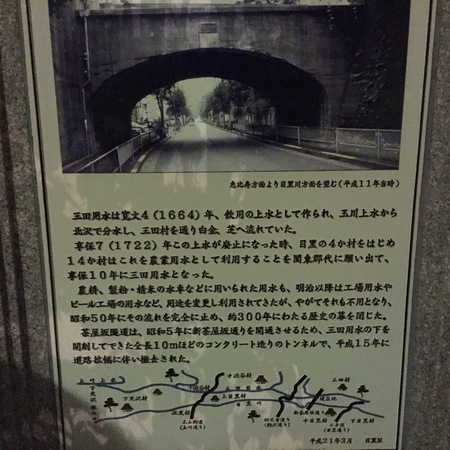 恵比寿方面より目黒川方面を望む(平成11年当時)
三田用水は寛文4(1664)年、飲用の上水として作られ、玉川上水から
北沢で分水し、三田村を通り白金、芝へ流れていた。
享保7(1722)年この上水が廃止になった時、目黒の4か村をはじめ
14か村はこれを農業用水として利用することを関東郡代に願い出て、
享保10年に三田用水となった。
農耕、製粉・精米の水車などに用いられた用水も、明治以降は工場用水や
ビール工場の用水など、用途を変更し利用されてきたが、やがてそれも不用となり、
昭和50年にその流れを完全に止め、約300年にわたる歴史の幕を閉じた。
茶屋坂隧道は、昭和5年に新茶屋坂通りを開通させるため、三田用水の下を
開削してできた全長10mほどのコンクリート造りのトンネルで、平成15年に
道路拡幅に伴い撤去された。
下渋谷村
上田村
下北沢村
上目黒村
目黒川
現在地
中目黒村
下目黒村
平成21年3月 目黒区